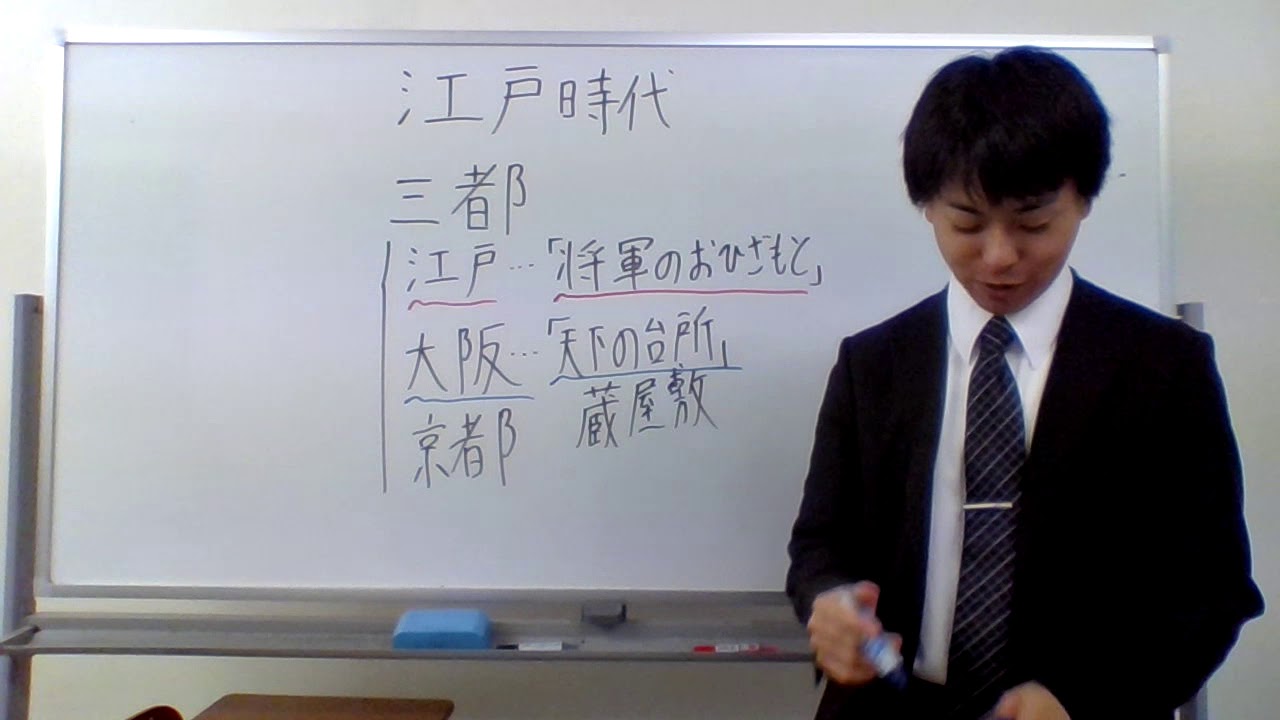 江戸時代
三都
江戸…「将軍のおひざもと」
大阪…「天下の台所」
蔵屋敷
京都